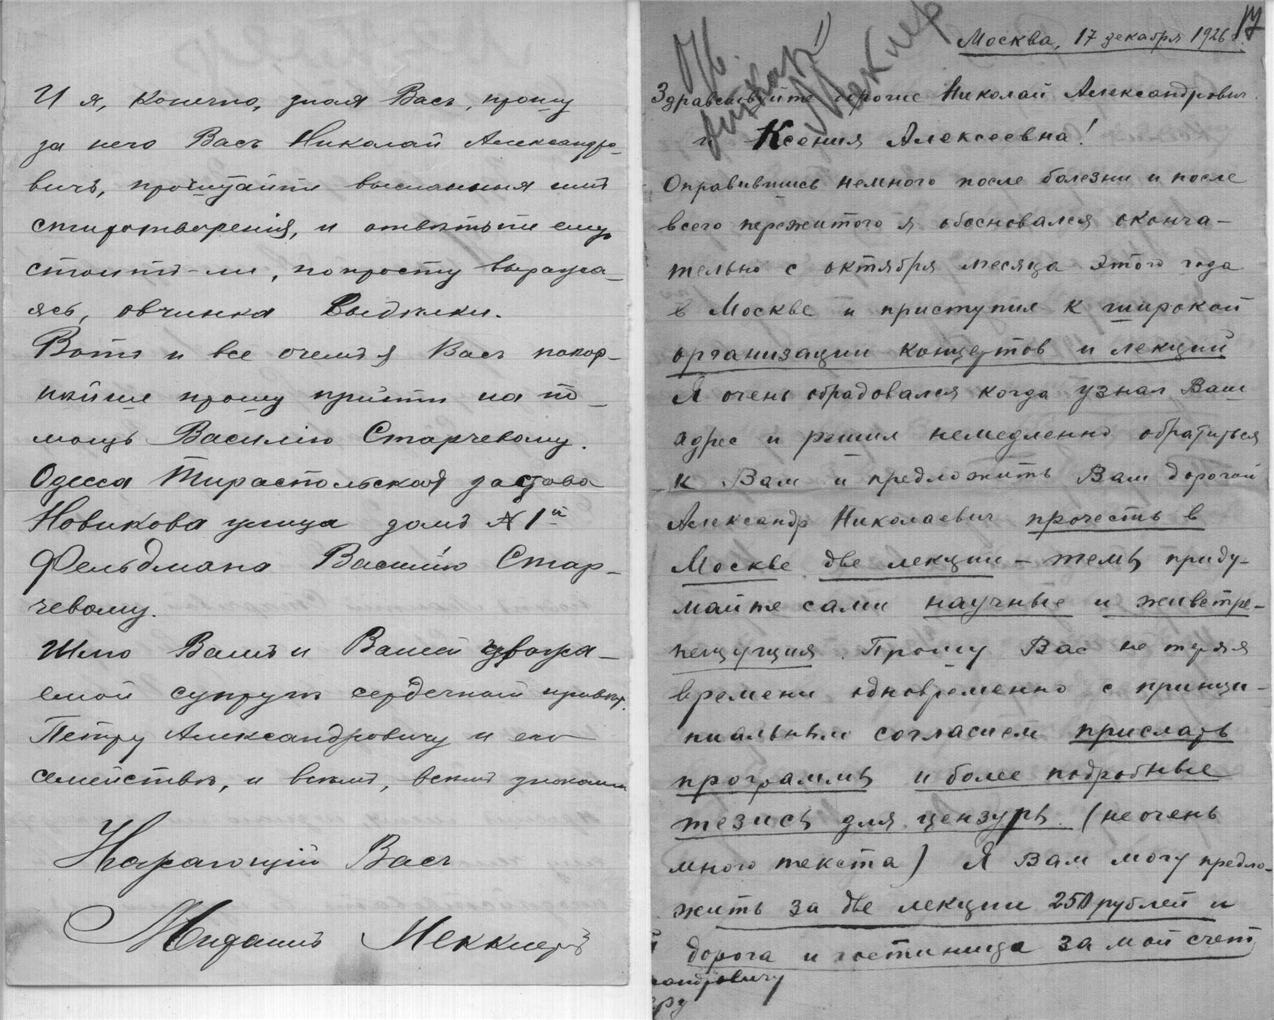 И я, конечно, зная Васъ, прошу
за него Васъ Николай Александро-
вичъ, прочитайте высланныя имъ
стихотворенія, и отвѣтьте ему
стоитъ-ли, попросту выража-
ясь, овчинка выдѣлки.
Вотъ и все очемъ я Васъ покор-
нѣйше прошу прійти на по-
мощь Василію Старчевому.
Одесса Тираспольская застава
Новикова улица домъ № 1й
Фельдмана Василію Стар-
чевому.
Шлю Вамъ и Вашей уважа-
емой супругѣ сердечный привѣт.
Петру Александровичу и его
семейству, и всѣмъ, всѣмъ знакомым
Уважающій Васъ
Меклеръ
17
Москва, 17 декабря 1926 г.
Здравствуйте дорогие Николай Александрович
и Ксения Алексеевна!
Оправившись немного после болезни и после
всего пережитого я обосновался оконча-
тельно с октября месяца этого года
в Москве и приступил к широкой
организации концертов и лекций
Я очень обрадовался когда узнал Ваш
адрес и решил немедленно обратиться
к Вам и предложить Вам дорогой
Александр Николаевич прочесть в
Москве две лекции – темы приду-
майте сами научные и животре-
пещущия. Прошу Вас не теряя
времени одновременно с принци-
пиальным согласием прислать
программы и более подробные
тезисы для цензуры. (не очень
много текста) Я Вам могу предло-
жить за две лекции 250 рублей и
дорога и гостиница за мой счет
андровичу